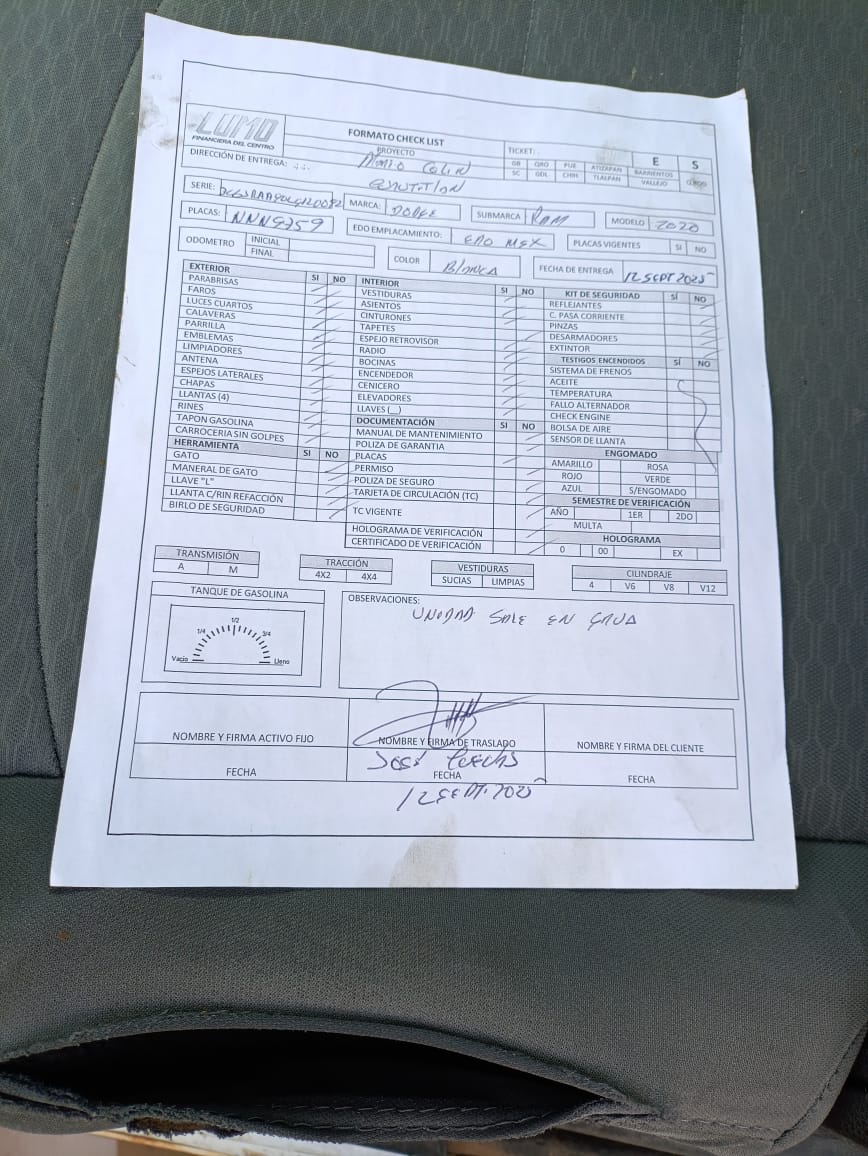 LUMO
FINANCIERA DEL CENTRO
FORMATO CHECK LIST
PROYECTO
TICKET:
E S
DIRECCIÓN DE ENTREGA:
GB QRO PUE ATIZAPAN BARRIENTOS
SC GDL CHIH TLALPAN VALLEJO
SERIE:
MARCA: DODGE
SUBMARCA RAM
MODELO 2020
PLACAS: NNN9759
EDO EMPLACAMIENTO: EDO MEX
PLACAS VIGENTES SI NO
ODOMETRO INICIAL
FINAL
COLOR BLANCA
FECHA DE ENTREGA 12 SEPT 2025
EXTERIOR SI NO
PARABRISAS
FAROS
LUCES CUARTOS
CALAVERAS
PARRILLA
EMBLEMAS
LIMPIADORES
ANTENA
ESPEJOS LATERALES
CHAPAS
LLANTAS (4)
RINES
TAPON GASOLINA
CARROCERIA SIN GOLPES
HERRAMIENTA SI NO
GATO
MANERAL DE GATO
LLAVE "L"
LLANTA C/RIN REFACCIÓN
BIRLO DE SEGURIDAD
INTERIOR SI NO
VESTIDURAS
ASIENTOS
CINTURONES
TAPETES
ESPEJO RETROVISOR
RADIO
BOCINAS
ENCENDEDOR
CENICERO
ELEVADORES
LLAVES (__)
DOCUMENTACIÓN SI NO
MANUAL DE MANTENIMIENTO
POLIZA DE GARANTIA
PLACAS
PERMISO
POLIZA DE SEGURO
TARJETA DE CIRCULACIÓN (TC)
TC VIGENTE
HOLOGRAMA DE VERIFICACIÓN
CERTIFICADO DE VERIFICACIÓN
KIT DE SEGURIDAD SÍ NO
REFLEJANTES
C. PASA CORRIENTE
PINZAS
DESARMADORES
EXTINTOR
TESTIGOS ENCENDIDOS SÍ NO
SISTEMA DE FRENOS
ACEITE
TEMPERATURA
FALLO ALTERNADOR
CHECK ENGINE
BOLSA DE AIRE
SENSOR DE LLANTA
ENGOMADO
AMARILLO ROSA
ROJO VERDE
AZUL S/ENGOMADO
SEMESTRE DE VERIFICACIÓN
AÑO 1ER 2DO
MULTA
HOLOGRAMA
0 00 EX
TRANSMISIÓN
A M
TRACCIÓN
4X2 4X4
VESTIDURAS
SUCIAS LIMPIAS
CILINDRAJE
4 V6 V8 V12
TANQUE DE GASOLINA
1/4 1/2 3/4
Vacio Lleno
OBSERVACIONES:
UNIDAD SALE EN GRUA
NOMBRE Y FIRMA ACTIVO FIJO
NOMBRE Y FIRMA DE TRASLADO
NOMBRE Y FIRMA DEL CLIENTE
José
FECHA
FECHA
FECHA
12 SEPT. 2025